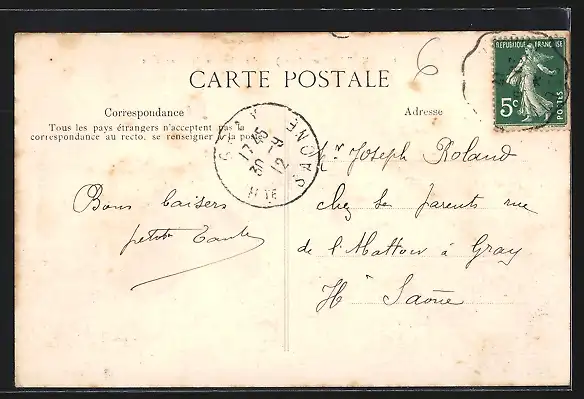 CARTE POSTALE
6
RÉPUBLIQUE FRANÇAISE
5c
POSTES
Correspondance
Tous les pays étrangers n'acceptent pas la
correspondance au recto, se renseigner à la poste
Adresse
GRAY
17 45
30 - 9
12
HTE SAONE
Bons baisers
petite Tante
Mr Joseph Roland
chez ses parents rue
de l'Abattoir à Gray
Hte Saône